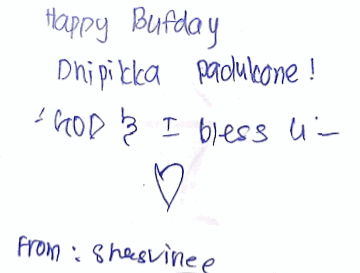 Happy Bufday
Dhipikka padukone!
GOD & I bless u :-
From : Shasvinee